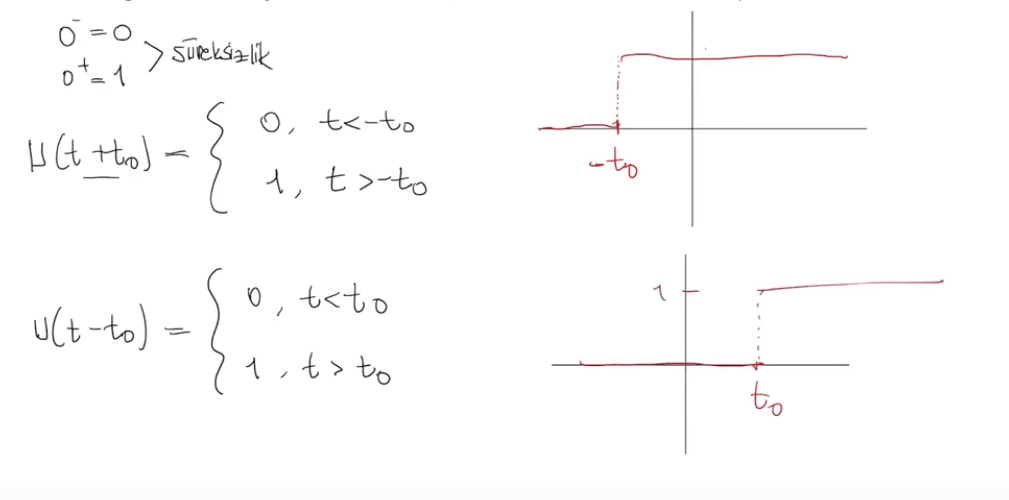 0⁻ = 0
0⁺ = 1 > süreksizlik
U(t + t₀) = { 0, t < -t₀
1, t > -t₀
-t₀
U(t - t₀) = { 0, t < t₀
1, t > t₀
1
t₀